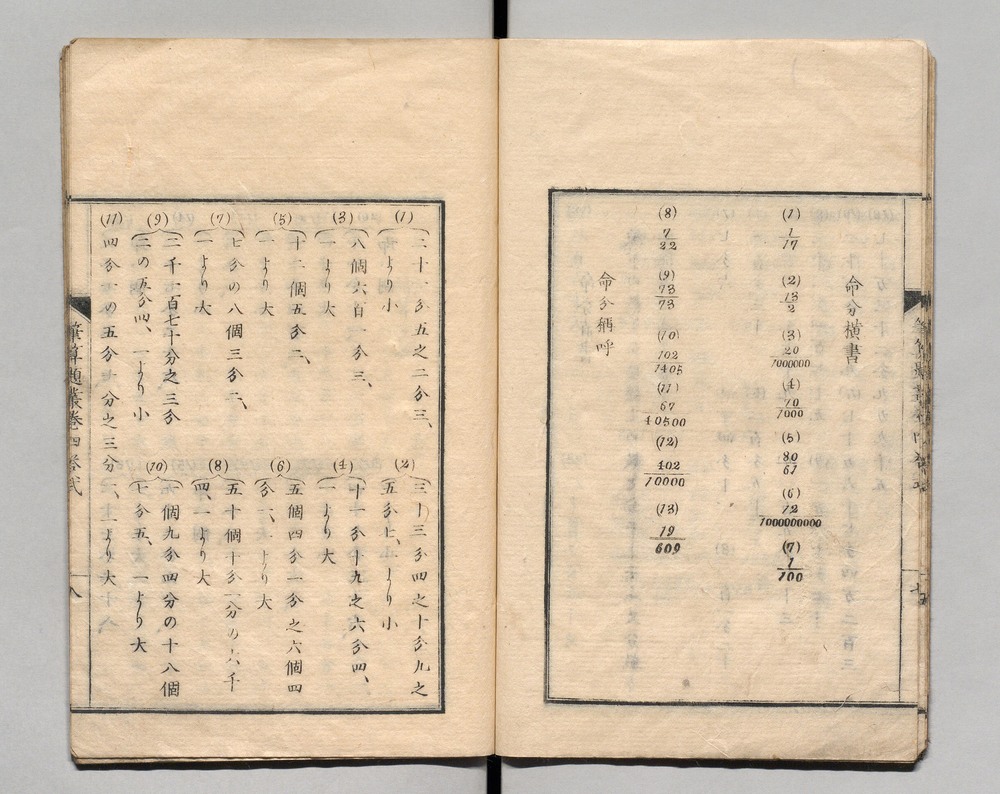 命分横書
(1) 1/17
(2) 13/2
(3) 20/1000000
(4) 10/1000
(5) 80/61
(6) 12/1000000000
(7) 1/100
(8) 7/22
(9) 73/73
(10) 102/1405
(11) 67/40500
(12) 402/10000
(13) 19/609
命分稱呼
(1) 二十一分五之二分三、
一より小
(2) 三十三分四之十分九之
五分七、一より小
(3) 八個六百一分三、
一より大
(4) 十一分十九之六分四、
一より大
(5) 十二個五分二、
一より大
(6) 五個四分一分之六個四
分一、一より大
(7) 七分の八個三分二、
一より大
(8) 五十個十分一分の六千
四、一より大
(9) 二千二百七十分之三分
二の五分四、一より小
(10) 九個九分四分の十八個
七分五、一より大
(11) 四分一の五分七分之三分一、一より大
筆算題叢卷四答式
八